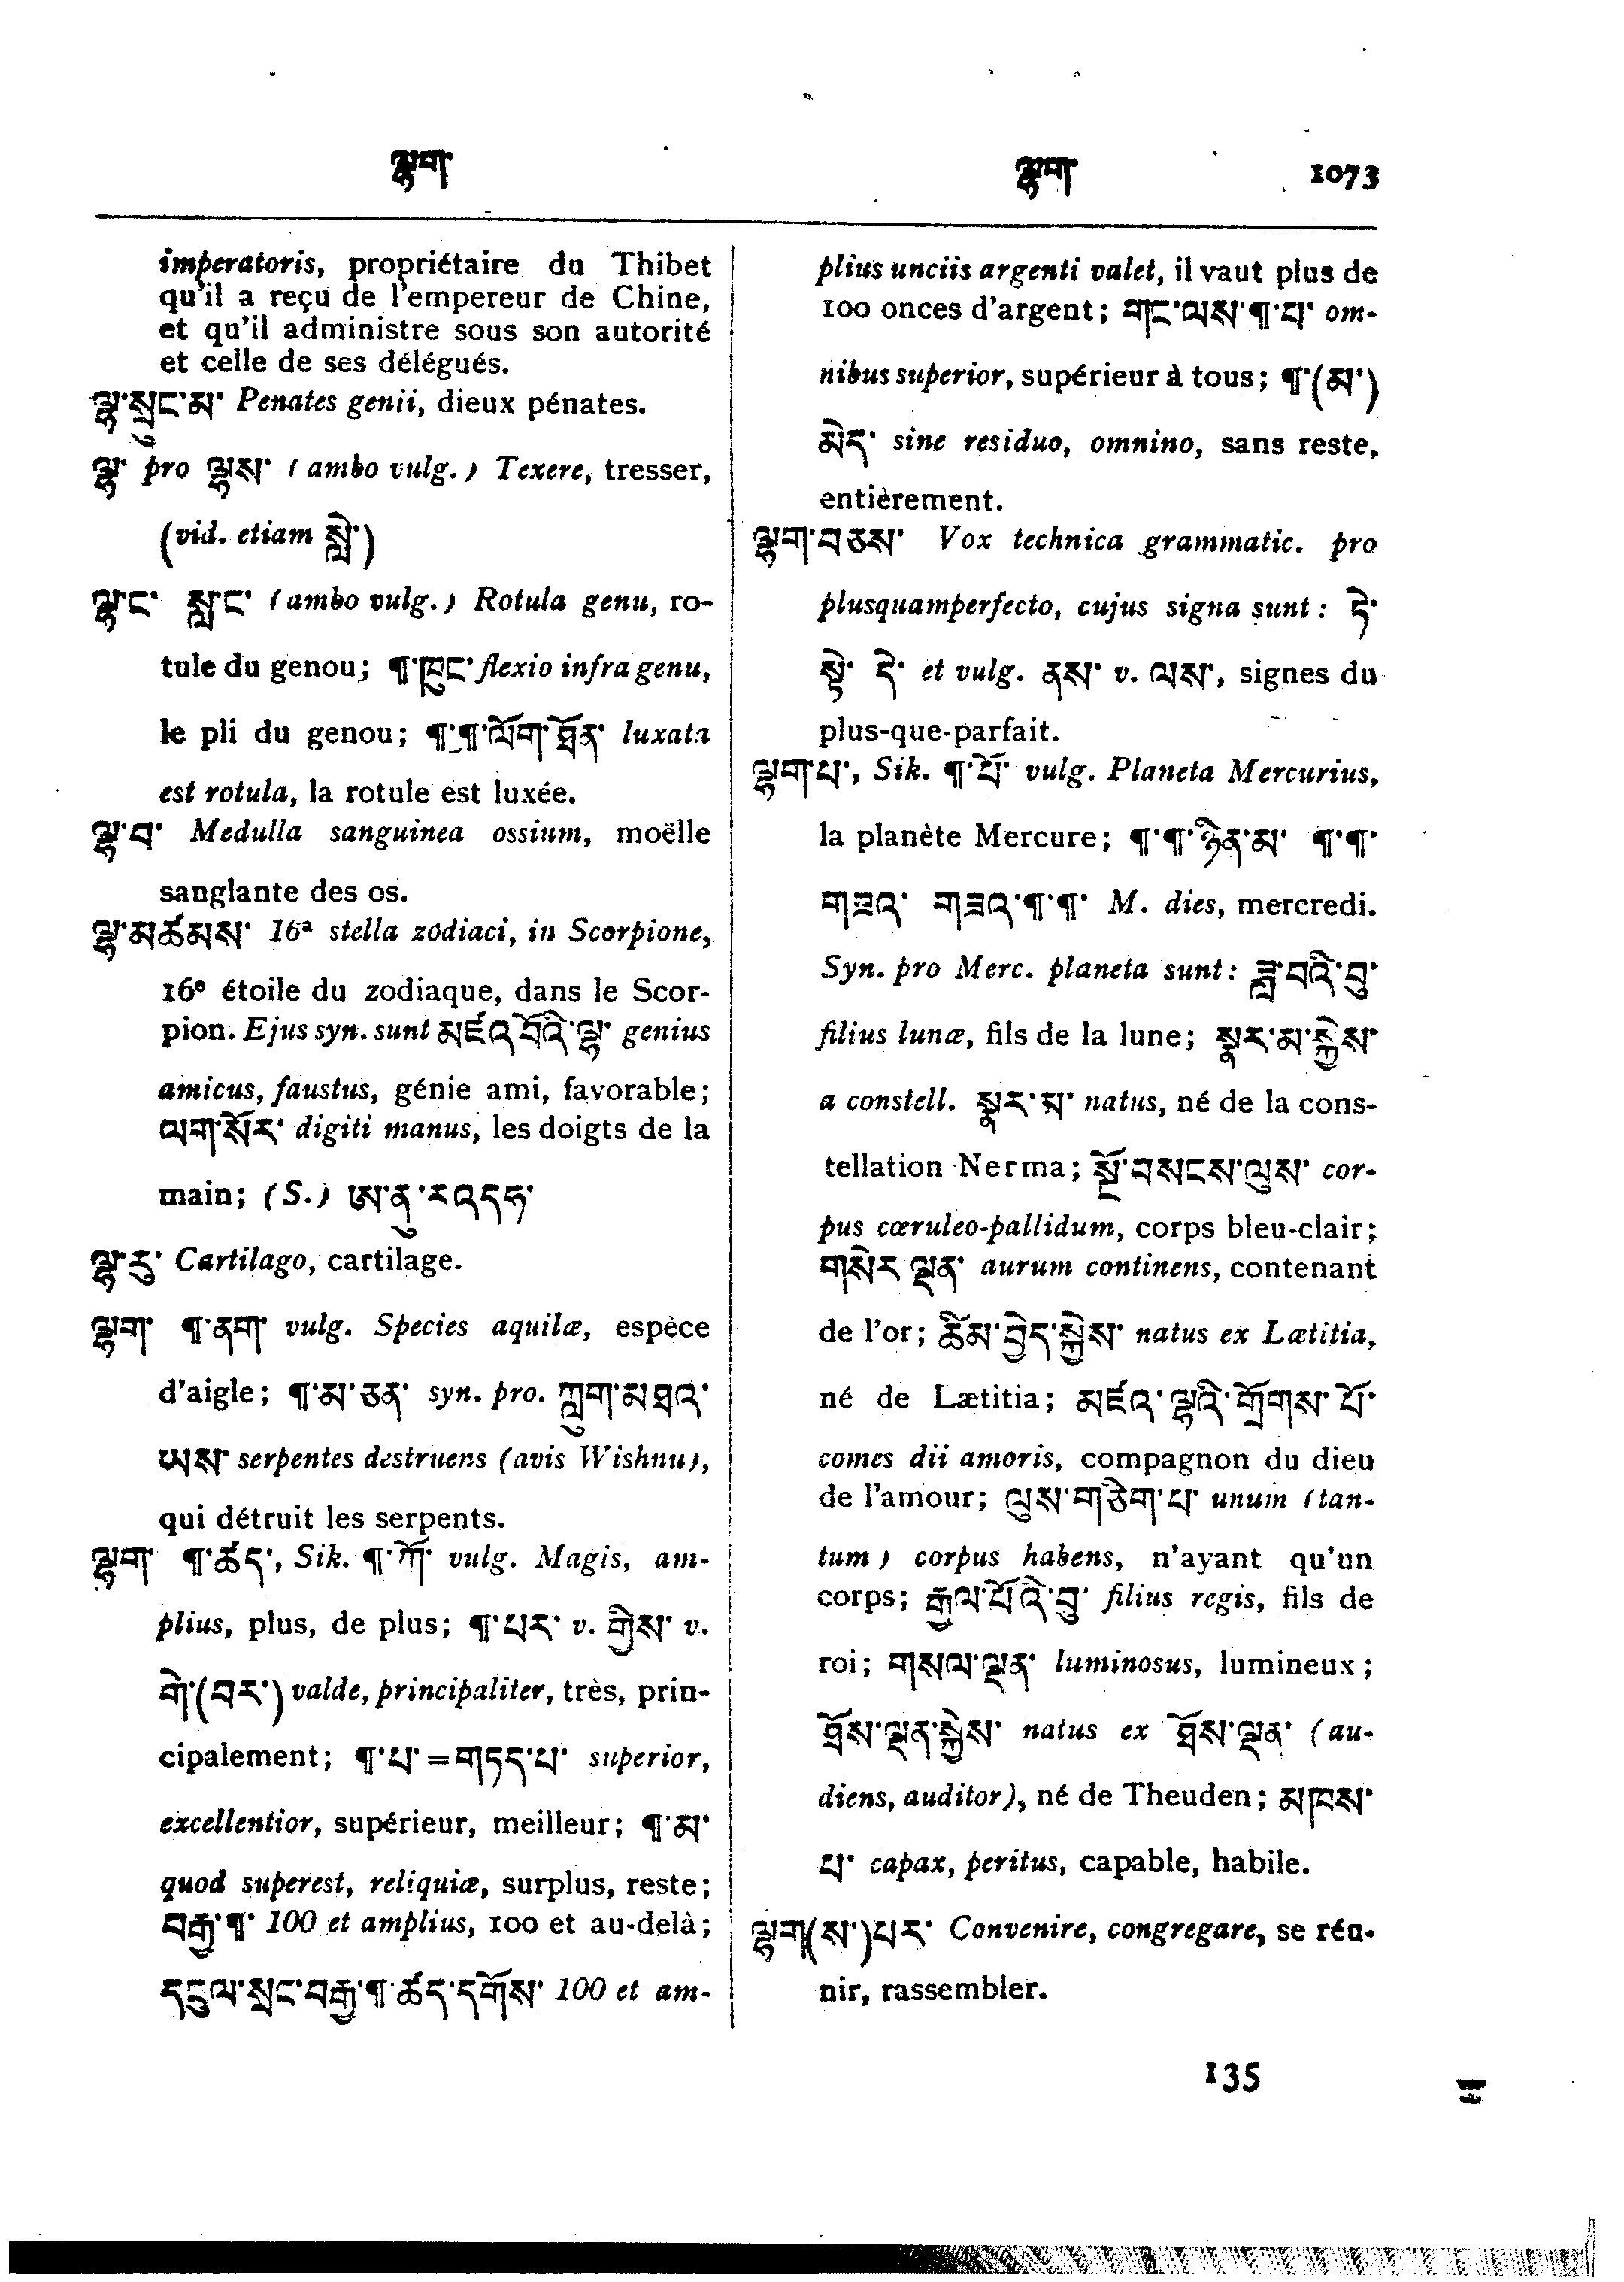 ལྷག་ ལྷག་ 1073
imperatoris, propriétaire du Thibet
qu'il a reçu de l'empereur de Chine,
et qu'il administre sous son autorité
et celle de ses délégués.
ལྷ་སྲུང་མ་ Penates genii, dieux pénates.
ལྷ་ pro ལྷས་ (ambo vulg.) Texere, tresser,
(vid. etiam སླེ་)
ལྷ་ང་ སླ་ང་ (ambo vulg.) Rotula genu, ro-
tule du genou; ¶་ཁུང་ flexio infra genu,
le pli du genou; ¶་¶་ལོག་ཐོན་ luxata
est rotula, la rotule est luxée.
ལྷ་བ་ Medulla sanguinea ossium, moëlle
sanglante des os.
ལྷ་མཚམས་ 16ª stella zodiaci, in Scorpione,
16e étoile du zodiaque, dans le Scor-
pion. Ejus syn. sunt མཛའ་བོའི་ལྷ་ genius
amicus, faustus, génie ami, favorable;
ལག་སོར་ digiti manus, les doigts de la
main; (S.) ཨ་ནུ་རའདཧ་
ལྷ་རུ་ Cartilago, cartilage.
ལྷག་ ¶་ནག་ vulg. Species aquilæ, espèce
d'aigle; ¶་མ་ཅན་ syn. pro. ཀླུག་མཐའ་
ཡས་ serpentes destruens (avis Wishnu),
qui détruit les serpents.
ལྷག་ ¶་ཚད་, Sik. ¶་ཀོ་ vulg. Magis, am-
plius, plus, de plus; ¶་པར་ v. གྱིས་ v.
གེ་(བར་) valde, principaliter, très, prin-
cipalement; ¶་པ་=གཏད་པ་ superior,
excellentior, supérieur, meilleur; ¶་མ་
quod superest, reliquiæ, surplus, reste;
བརྒྱ་¶་ 100 et amplius, 100 et au-delà;
དངུལ་སྲང་བརྒྱ་¶་ཚད་དགོས་ 100 et am-
plius unciis argenti valet, il vaut plus de
100 onces d'argent; གང་ལས་¶་པ་ om-
nibus superior, supérieur à tous; ¶་(མ་)
མེད་ sine residuo, omnino, sans reste,
entièrement.
ལྷག་བཅས་ Vox technica grammatic. pro
plusquamperfecto, cujus signa sunt: ཏེ་
སྟེ་ དེ་ et vulg. ནས་ v. ལས་, signes du
plus-que-parfait.
ལྷག་པ་, Sik. ¶་པོ་ vulg. Planeta Mercurius,
la planète Mercure; ¶་¶་ཉིན་མ་ ¶་¶་
གཟའ་ གཟའ་¶་¶་ M. dies, mercredi.
Syn. pro Merc. planeta sunt: ཟླ་བའི་བུ་
filius lunæ, fils de la lune; སྣར་མ་སྐྱེས་
a constell. སྣར་མ་ natus, né de la cons-
tellation Nerma; སྔོ་བསངས་ལུས་ cor-
pus cœruleo-pallidum, corps bleu-clair;
གསེར་ལྡན་ aurum continens, contenant
de l'or; ཚིམ་བྱེད་སྐྱེས་ natus ex Lætitia,
né de Lætitia; མཛའ་ལྷའི་གྲོགས་པོ་
comes dii amoris, compagnon du dieu
de l'amour; ལུས་གཅིག་པ་ unum (tan-
tum) corpus habens, n'ayant qu'un
corps; རྒྱལ་པོའི་བུ་ filius regis, fils de
roi; གསལ་ལྡན་ luminosus, lumineux;
ཐོས་ལྡན་སྐྱེས་ natus ex ཐོས་ལྡན་ (au-
diens, auditor), né de Theuden; མཁས་
པ་ capax, peritus, capable, habile.
ལྷག(ས་)པར་ Convenire, congregare, se réu-
nir, rassembler.
135